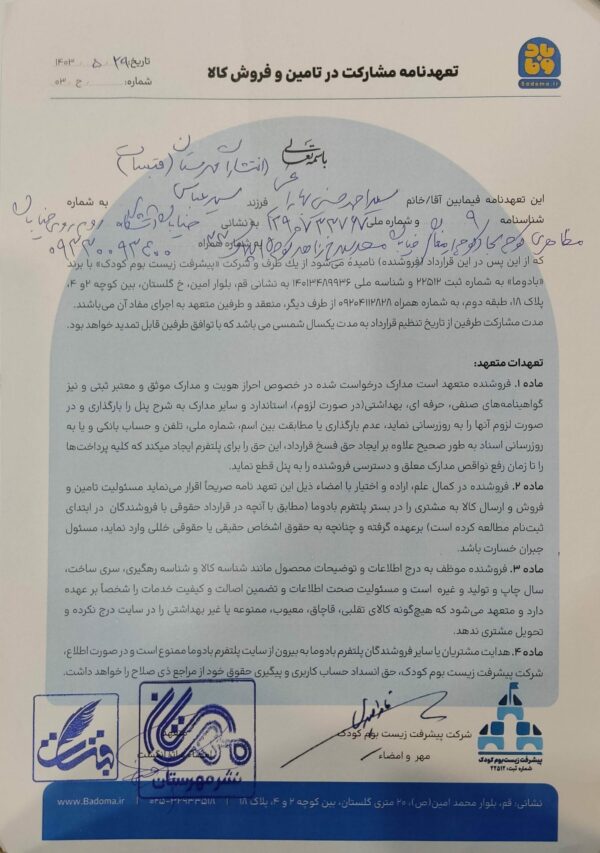 تاریخ: ۱۴۰۳ ۵ ۲۹
شماره: ج ۰۳
تعهدنامه مشارکت در تامین و فروش کالا
بادوما
Badoma.ir
باسمه تعالی
انتشارات مهرستان (قبسات)
این تعهدنامه فیمابین آقا/خانم سید احمد حسنی فرزند سید عباس به شماره
شناسنامه ۹ و شماره ملی به نشانی خیابان دانشگاه روبروی خیابان
مطاهری کوچه به شماره همراه ۰۹۳۳۰۰۹۳۶۰۰
که از این پس در این قرارداد (فروشنده) نامیده می‌شود از یك طرف و شرکت «پیشرفت زیست بوم کودک» با برند
«بادوما» به شماره ثبت ۲۲۵۱۲ و شناسه ملی ۱۴۰۱۳۴۸۹۹۳۶ به نشانی قم، بلوار امین، خ گلستان، بین کوچه ۲و ۴،
پلاک ۱۸، طبقه دوم، به شماره همراه ۰۹۲۰۴۱۱۲۸۲۸ از طرف دیگر، منعقد و طرفین متعهد به اجرای مفاد آن می‌باشند.
مدت مشارکت طرفین از تاریخ تنظیم قرارداد به مدت یکسال شمسی می باشد که با توافق طرفین قابل تمدید خواهد بود.
تعهدات متعهد:
ماده ۱. فروشنده متعهد است مدارک درخواست شده در خصوص احراز هویت و مدارک موثق و معتبر ثبتی و نیز
گواهینامه‌های صنفی، حرفه ای، بهداشتی(در صورت لزوم)، استاندارد و سایر مدارک به شرح پنل را بارگذاری و در
صورت لزوم آنها را به روزرسانی نماید، عدم بارگذاری یا مطابقت بین اسم، شماره ملی، تلفن و حساب بانکی و یا به
روزرسانی اسناد به طور صحیح علاوه بر ایجاد حق فسخ قرارداد، این حق را برای پلتفرم ایجاد میکند که کلیه پرداخت‌ها
را تا زمان رفع نواقص مدارک معلق و دسترسی فروشنده را به پنل قطع نماید.
ماده ۲. فروشنده در کمال علم، اراده و اختیار با امضاء ذیل این تعهد نامه صریحاً اقرار می‌نماید مسئولیت تامین و
فروش و ارسال کالا به مشتری را در بستر پلتفرم بادوما (مطابق با آنچه در قرارداد حقوقی با فروشندگان در ابتدای
ثبت‌نام مطالعه کرده است) برعهده گرفته و چنانچه به حقوق اشخاص حقیقی یا حقوقی خللی وارد نماید، مسئول
جبران خسارت باشد.
ماده ۳. فروشنده موظف به درج اطلاعات و توضیحات محصول مانند شناسه کالا و شناسه رهگیری، سری ساخت،
سال چاپ و تولید و غیره است و مسئولیت صحت اطلاعات و تضمین اصالت و کیفیت خدمات را شخصاً بر عهده
دارد و متعهد می‌شود که هیچ‌گونه کالای تقلبی، قاچاق، معیوب، ممنوعه یا غیر بهداشتی را در سایت درج نکرده و
تحویل مشتری ندهد.
ماده ۴. هدایت مشتریان یا سایر فروشندگان پلتفرم بادوما به بیرون از سایت پلتفرم بادوما ممنوع است و در صورت اطلاع،
شرکت پیشرفت زیست بوم کودک، حق انسداد حساب کاربری و پیگیری حقوق خود از مراجع ذی صلاح را خواهد داشت.
شرکت پیشرفت زیست بوم کودک
مهر و امضاء
متعهد
قبسات
نشر مهرستان
پیشرفت زیست بوم کودک
شماره ثبت: ۲۲۵۱۲
نشانی: قم، بلوار محمد امین(ص)، ۲۰ متری گلستان، بین کوچه ۲ و ۴، پلاک ۱۸ | ۰۲۵-۳۲۹۳۳۵۱۸ | www.Badoma.ir